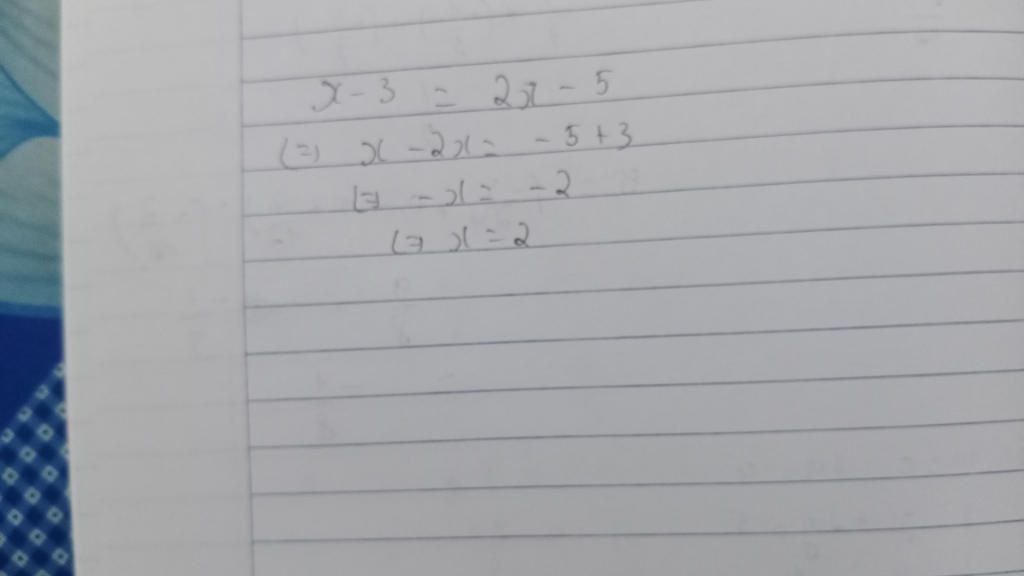 x - 3 = 2x - 5
(=) x - 2x = - 5 + 3
(=) - x = - 2
(=) x = 2